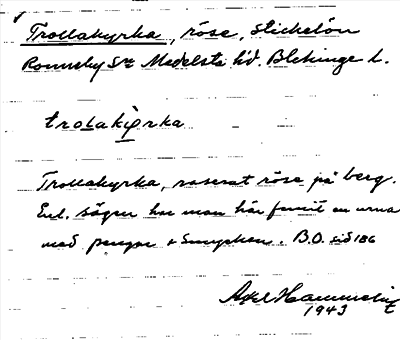 Trollakyrka, röse, Stickelön
Ronneby Sn Medelsta hd. Blekinge l.
trolakyrka
Trollakyrka, raserat röse på berg.
Enl. sägen har man här funnit en urna
med pengar & smycken. B.O. sid 186
Axel Hammelin
1943